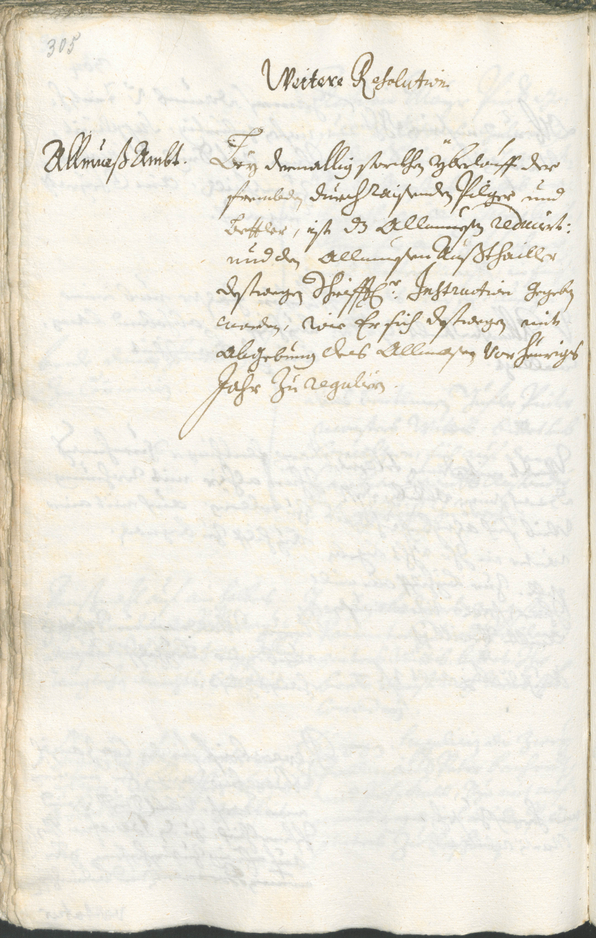 305
Weitere Resolution
Allmueß Ambt.
Bey dermallig starckhen Yberlauff der
frembden durchraisenden Pilger und
Bettler, ist dz Allmuesen reducirt:
und den Allmuesen Außthailler
deßwegen Schrifftl: Instruction gegeben
worden, wie Er sich deßwegen mit
abgebung des Allmuesen vor heurigs
Jahr zu regulirn.